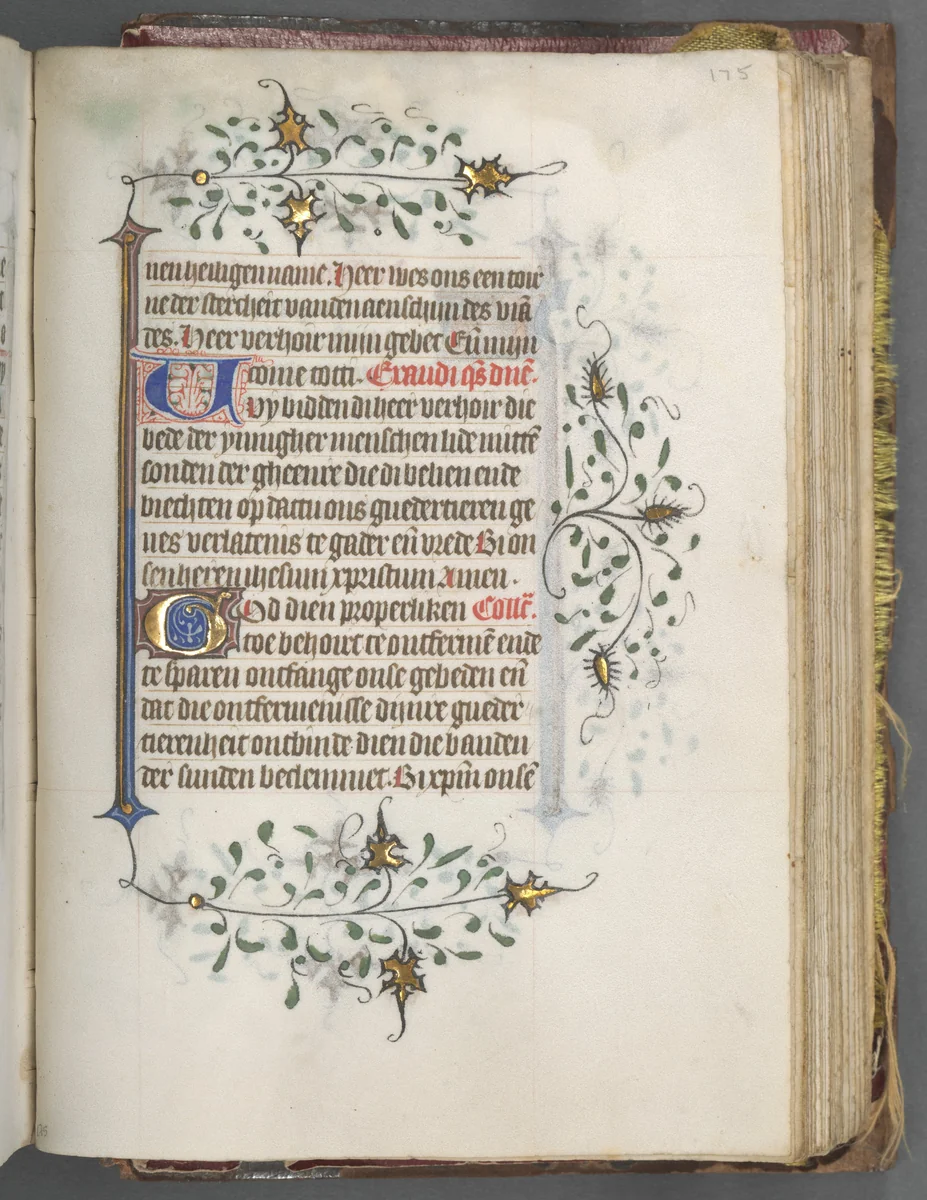 175
nen heiligen name. Heer wes ons een toir
ne der stercheit vanden aenschijn des viā
des. Heer verhoir mijn gebet Eñ mijn
come totti. Exaudi qs̄ dn̄e.
Wy bidden di heer verhoir die
bede der ynnigher menschen ende mittē
sonden der gheenre die di belien ende
biechten op dattu ons guedertieren ge
nes verlatenis te gader eñ vrede Bi on
sen heren ihesum xpristum Amen.
God dien properliken Collc̄.
toe behoirt te ontfermē ende
te sparen ontfange onse gebeden eñ
dat die ontfermenisse dijnre gueder
tierenheit ontbinde dien die banden
der sunden beclemmet. Bi xp̄m onsē